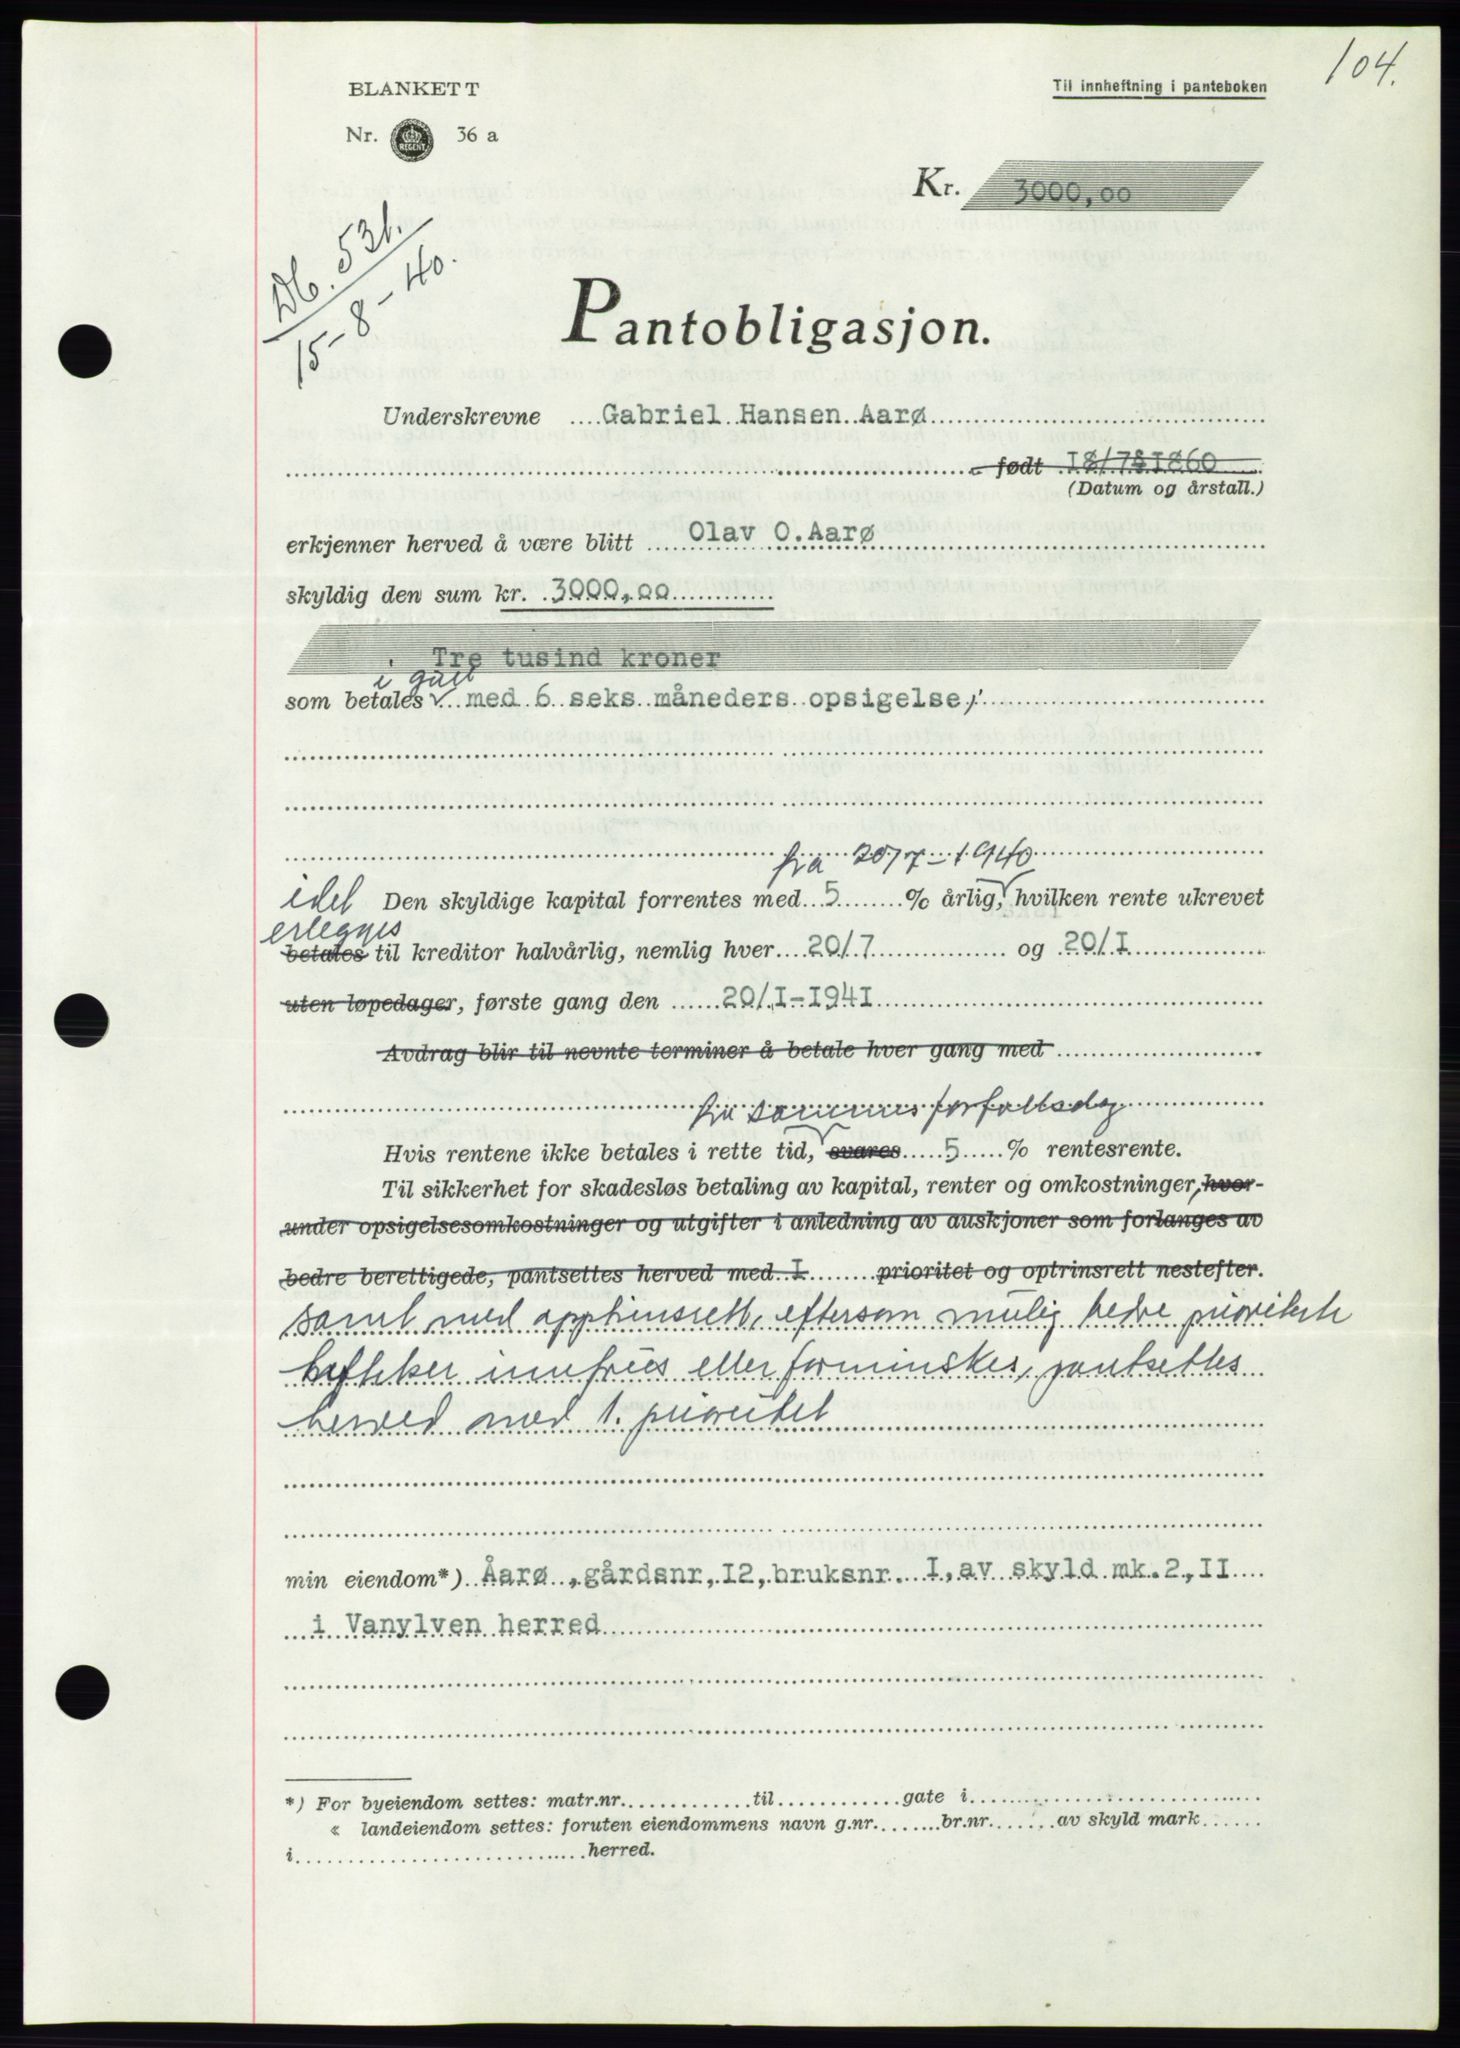 104.
BLANKETT
Til innheftning i panteboken
Nr. REGENT 36 a
Kr. 3000,00
Db. 531.
15-8-40.
Pantobligasjon.
Underskrevne Gabriel Hansen Aarø
født 18/7 1860
(Datum og årstall.)
erkjenner herved å være blitt Olav O. Aarø
skyldig den sum kr. 3000,00
Tre tusind kroner
i gull
som betales med 6 seks måneders opsigelse,
fra 20/7-1940
idet Den skyldige kapital forrentes med 5 % årlig, hvilken rente ukrevet
erlegges
betales til kreditor halvårlig, nemlig hver 20/7 og 20/I
uten løpedager, første gang den 20/I-1941
Avdrag blir til nevnte terminer å betale hver gang med
fra sammes forfallsdag
Hvis rentene ikke betales i rette tid, svares 5 % rentesrente.
Til sikkerhet for skadesløs betaling av kapital, renter og omkostninger, hvor-
under opsigelsesomkostninger og utgifter i anledning av auskjoner som forlanges av
bedre berettigede, pantsettes herved med I prioritet og optrinsrett nestefter.
samt med opptrinsrett, eftersom mulig bedre prioriterte
heftelser innfries eller forminskes, pantsettes
herved med 1. prioritet
min eiendom*) Åarø , gårdsnr, I2, bruksnr. I, av skyld mk. 2, II
i Vanylven herred
*) For byeiendom settes: matr.nr. til gate i
« landeiendom settes: foruten eiendommens navn g.nr. br.nr. av skyld mark
i herred.